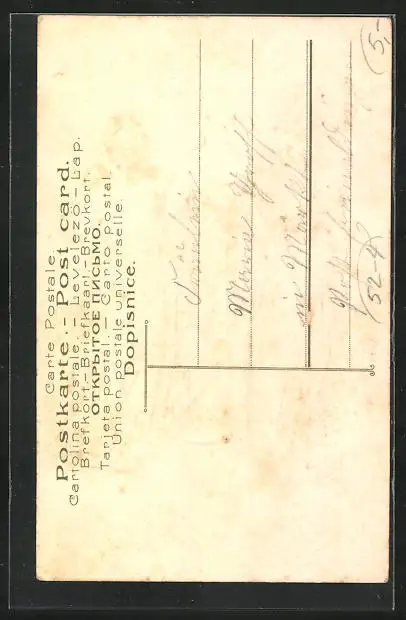 Carte Postale.
Postkarte.- Post card.
Cartolina postale.- Levelező-Lap.
Brefkort.-Briefkaart.-Brevkort.
ОТКРЫТОЕ ПИСЬМО.
Tarjeta postal.- Carto Postal.
Union postale universelle.
Dopisnice.
Fräulein
Marie
in
52-4
5,-